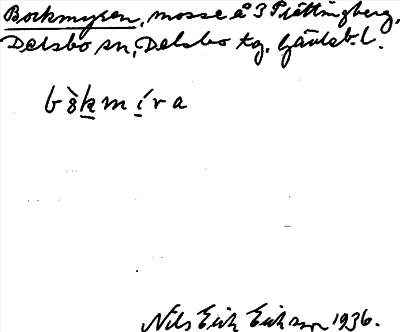 Bockmyran, mosse å 3 Prättingberg,
Delsbo sn, Delsbo tg. Gävleb. l.
bòkmíra
Nils Erik Eriksson 1936.